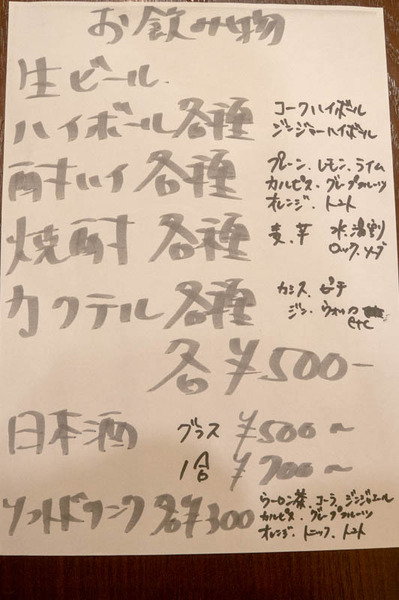 お飲み物
生ビール
ハイボール各種 コークハイボール
ジンジャーハイボール
酎ハイ各種 プレーン、レモン、ライム
カルピス、グレープフルーツ
オレンジ、トマト
焼酎各種 麦、芋 水、湯割
ロック、ソーダ
カクテル各種 カシス、ピーチ
ジン、ウォッカ
etc
各¥500-
日本酒 グラス ¥500〜
1合 ¥700〜
ソフトドリンク各¥300 ウーロン茶、コーラ、ジンジャエール
カルピス、グレープフルーツ
オレンジ、トニック、トマト